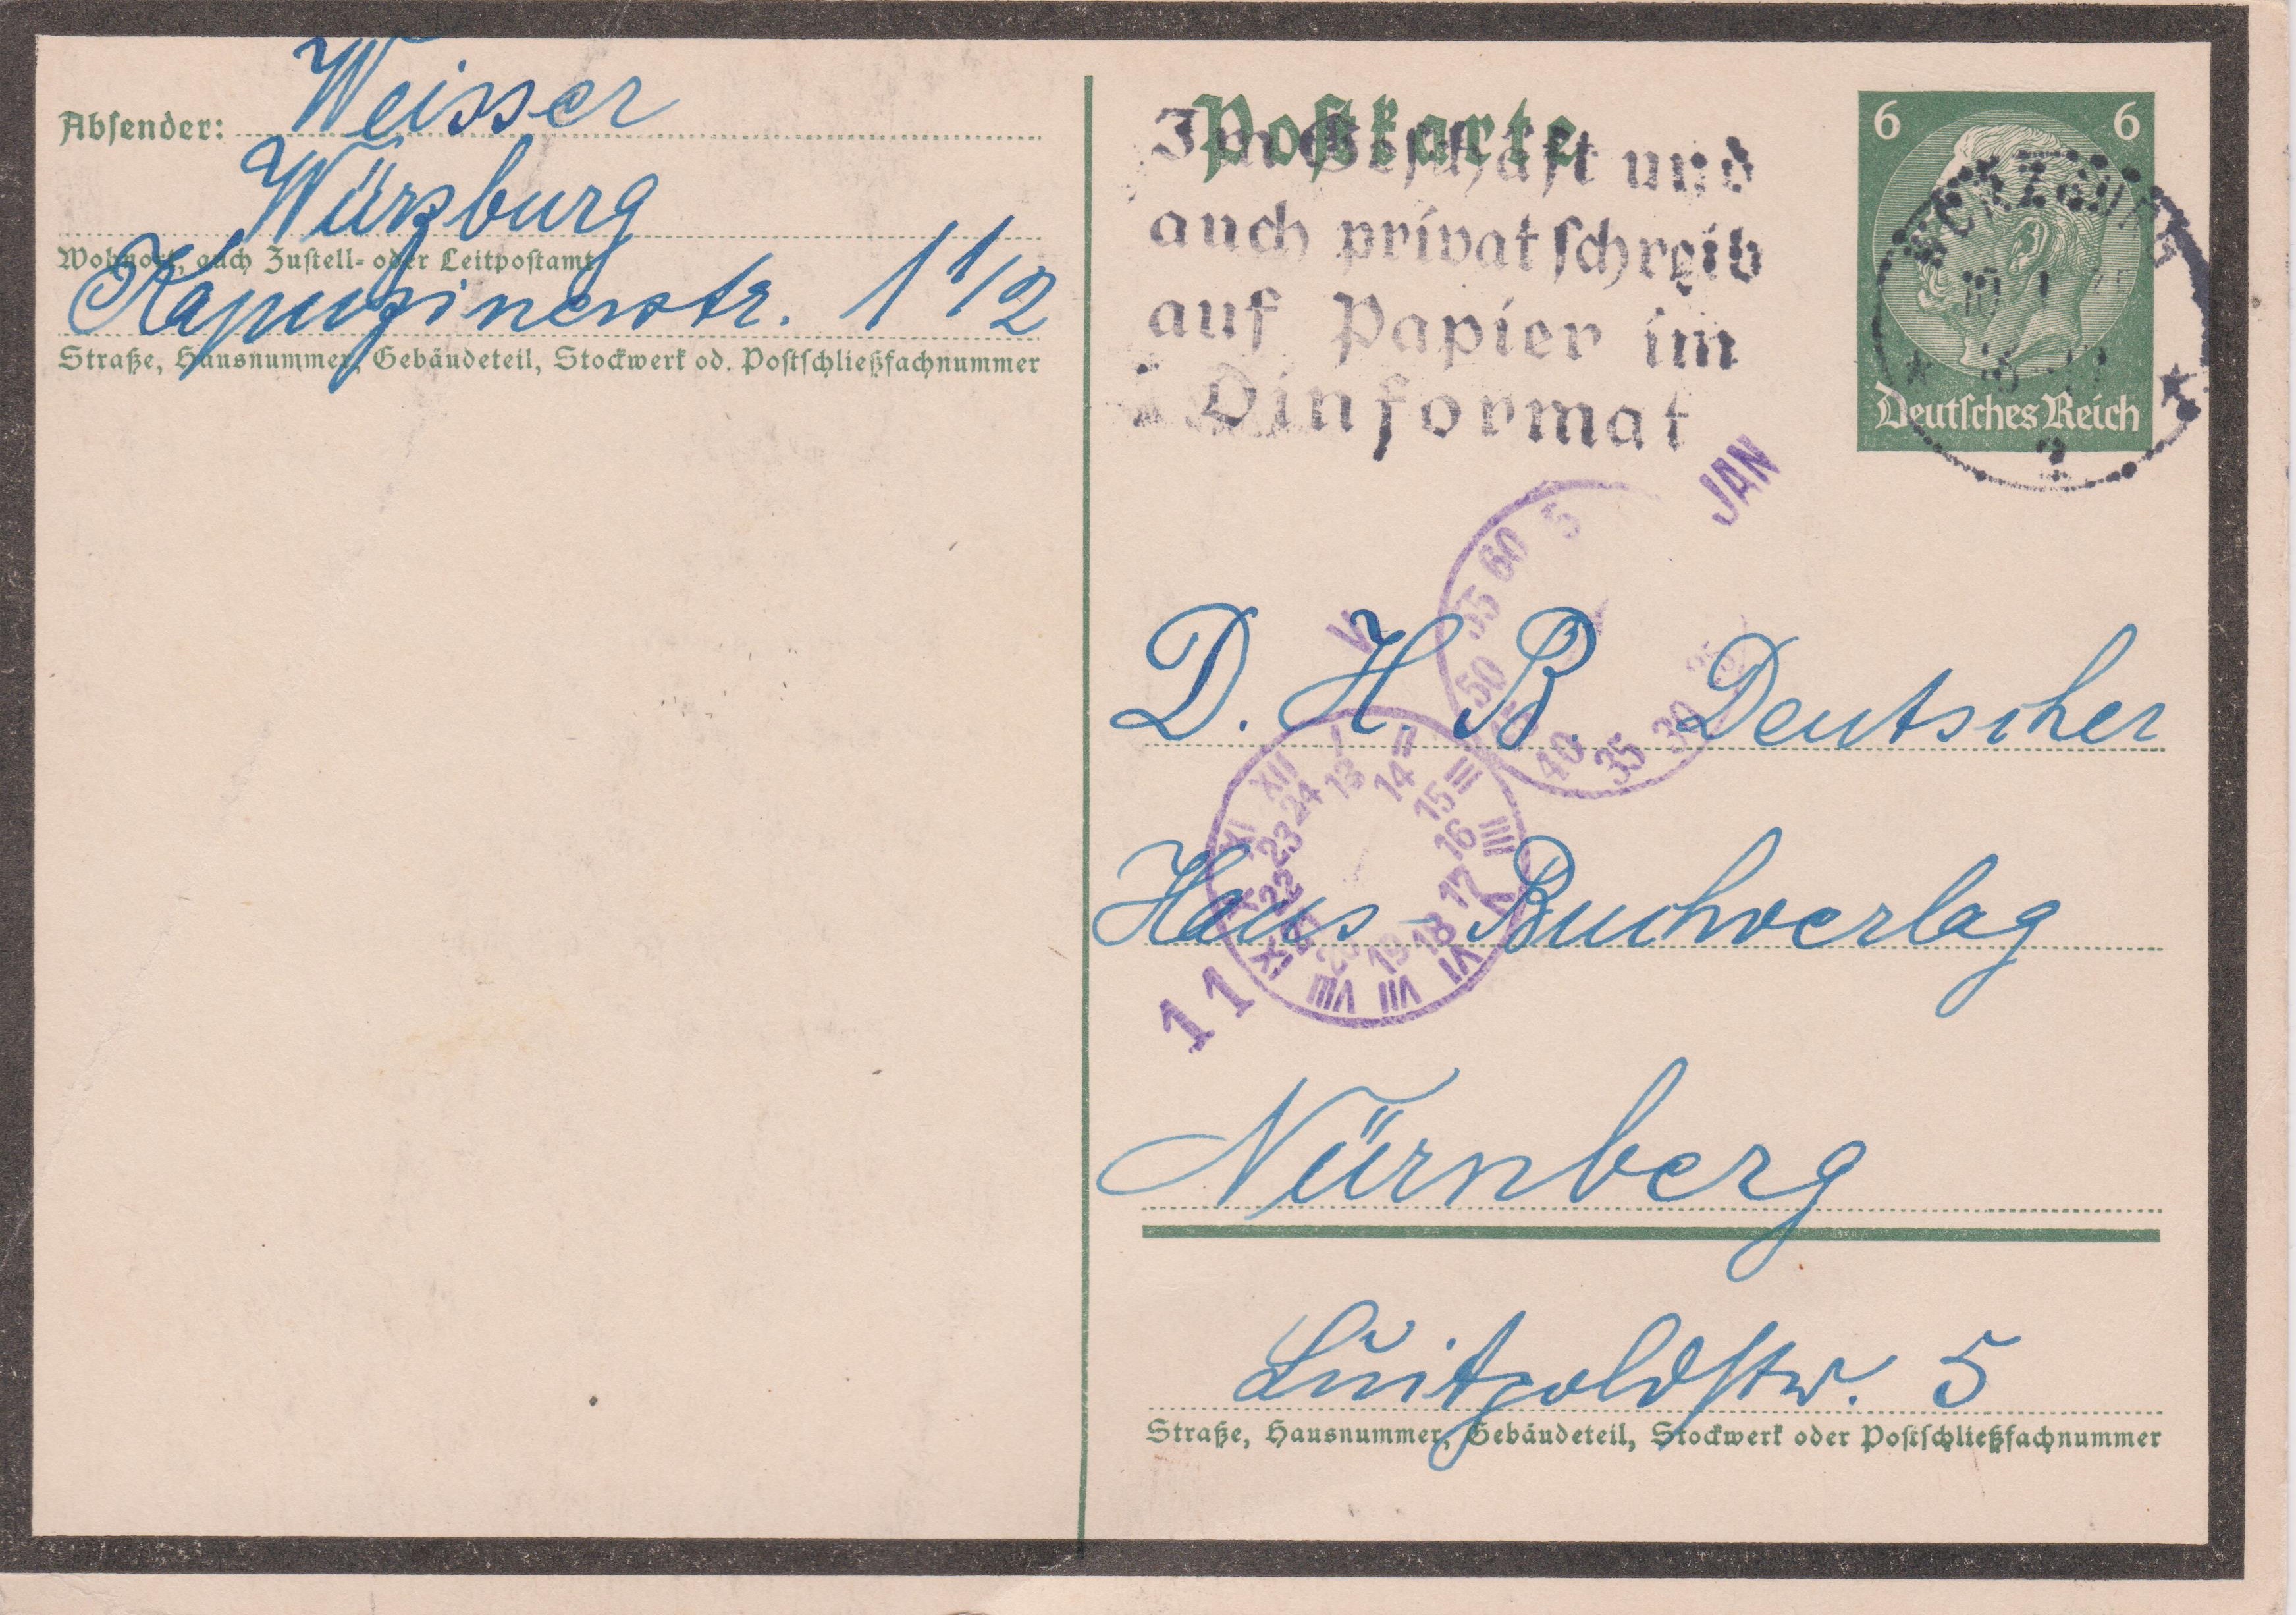 Absender: Weisser
Würzburg
Wohnort, auch Zustell- oder Leitpostamt
Kapuzinerstr. 1 1/2
Straße, Hausnummer, Gebäudeteil, Stockwerk od. Postschließfachnummer
Postkarte
Im Geschäft und
auch privat schreib
auf Papier im
Dinformat
6 6
Deutsches Reich
WÜRZBURG
10 1
2
JAN
V
5 25 30 35 40 45 50 55 60
I II III IIII V VI VII VIII IX X XI XII
13 14 15 16 17 18 19 20 21 22 23 24
11
D. H. B. Deutscher
Haus-Buchverlag
Nürnberg
Luitpoldstr. 5
Straße, Hausnummer, Gebäudeteil, Stockwerk oder Postschließfachnummer